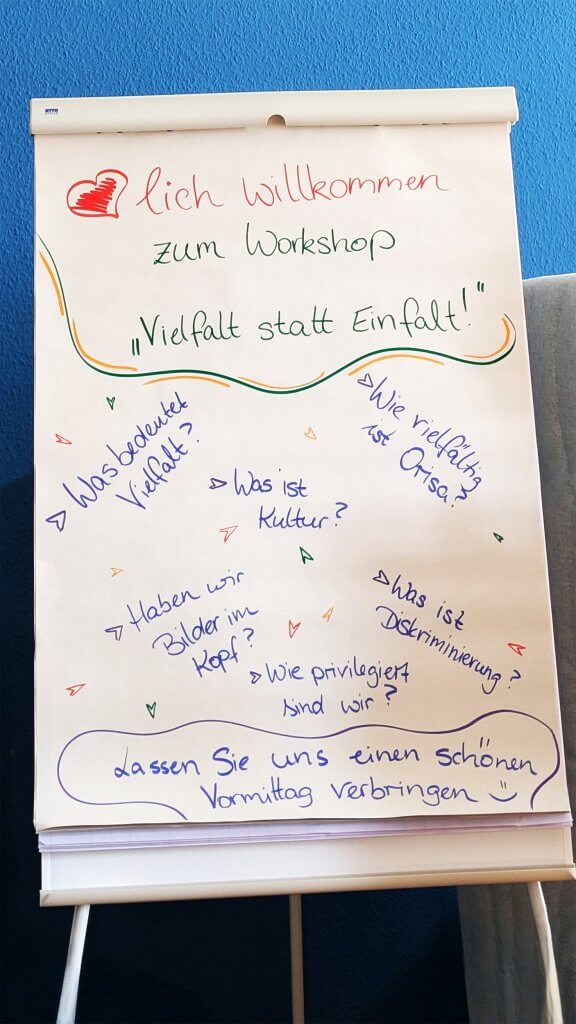 OTTO
lich willkommen
zum Workshop
„Vielfalt statt Einfalt!"
Was bedeutet
Vielfalt?
Wie vielfältig
ist Orisa?
Was ist
Kultur?
Haben wir
Bilder im
Kopf?
Was ist
Diskriminierung?
Wie privilegiert
sind wir?
Lassen Sie uns einen schönen
Vormittag verbringen